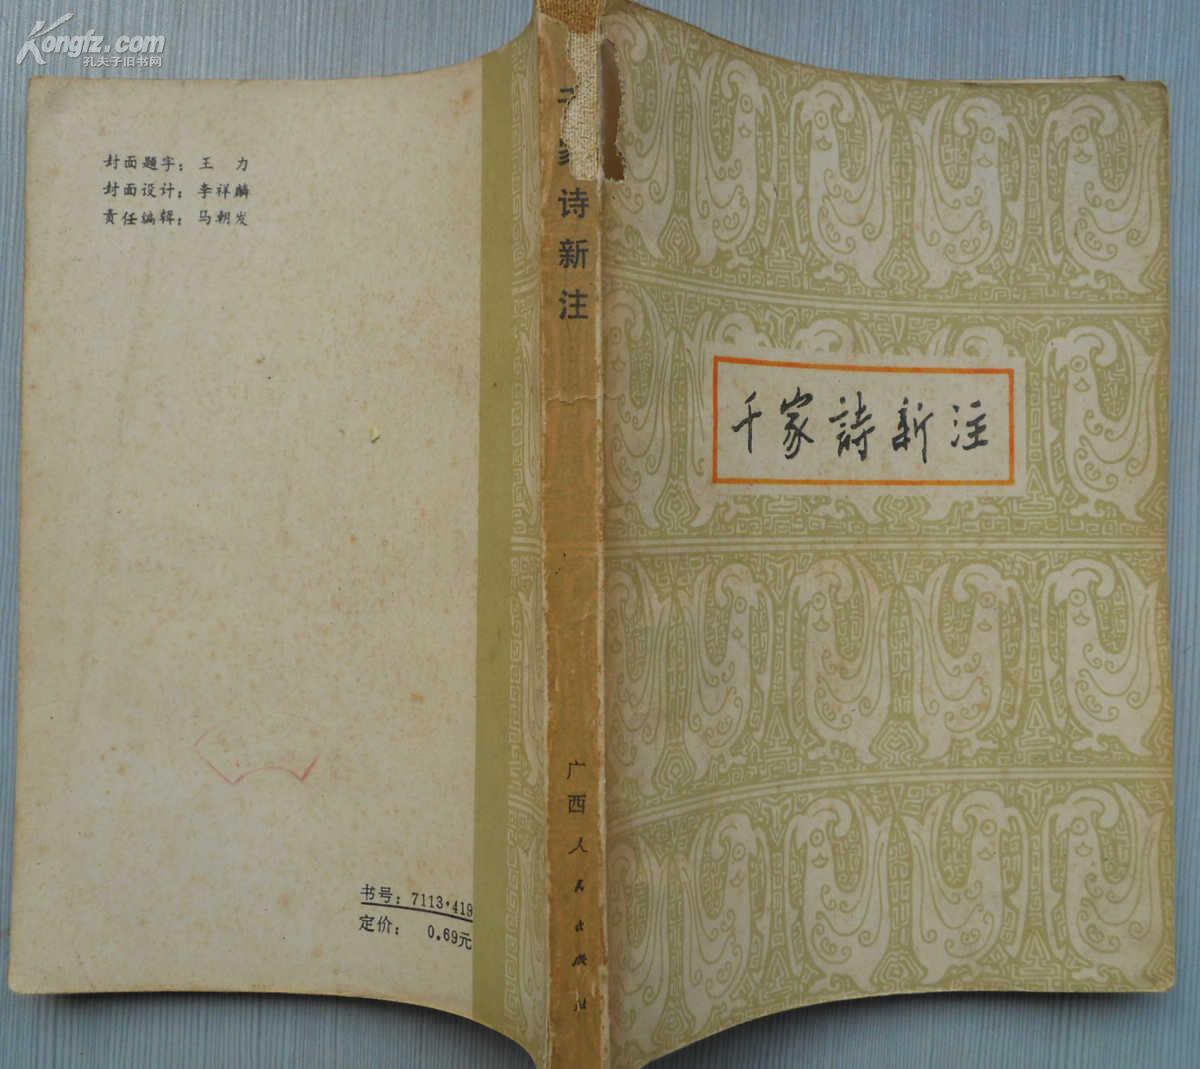 Kongfz.com
孔夫子旧书网
封面题字：王　力
封面设计：李祥麟
责任编辑：马朝发
书号：7113·419
定价：0.69元
家诗新注
广西人民出版社
千家詩新注